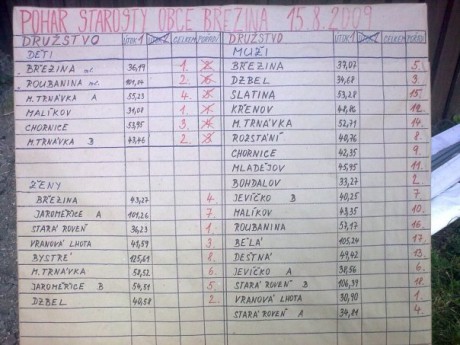 POHÁR STAROSTY OBCE BŘEZINA 15.8.2009
DRUŽSTVO ÚTOK 1 CELKEM POŘADÍ
DĚTI
BŘEZINA ml. 36,19 1.
ROUBANINA ml. 2.
M. TRNÁVKA A 55,23 4.
MALÍKOV 31,08 1.
CHORNICE 53,95 3.
M. TRNÁVKA B 43,46 2.
ŽENY
BŘEZINA 43,27 4.
JAROMĚŘICE A 101,26 7.
STARÁ ROVEŇ 36,23 1.
VRANOVÁ LHOTA 41,59 3.
BYSTRÉ 125,61 8.
M. TRNÁVKA 58,52 6.
JAROMĚŘICE B 54,81 5.
DZBEL 40,58 2.
DRUŽSTVO ÚTOK 1 CELKEM POŘADÍ
MUŽI
BŘEZINA 37,07 5.
DZBEL 34,68 3.
SLATINA 53,28 15.
KŘENOV 12.
M. TRNÁVKA 52,71 14.
ROZSTÁNÍ 40,76 8.
CHORNICE 42,35 9.
MLADĚJOV 45,95 11.
BOHDALOV 33,27 2.
JEVÍČKO B 40,25 7.
MALÍKOV 43,35 10.
ROUBANINA 57,17 16.
BĚLÁ 105,24 17.
DEŠTNÁ 49,42 13.
JEVÍČKO A 38,56 6.
STARÁ ROVEŇ B 106,39 18.
VRANOVÁ LHOTA 30,90 1.
STARÁ ROVEŇ A 34,81 4.